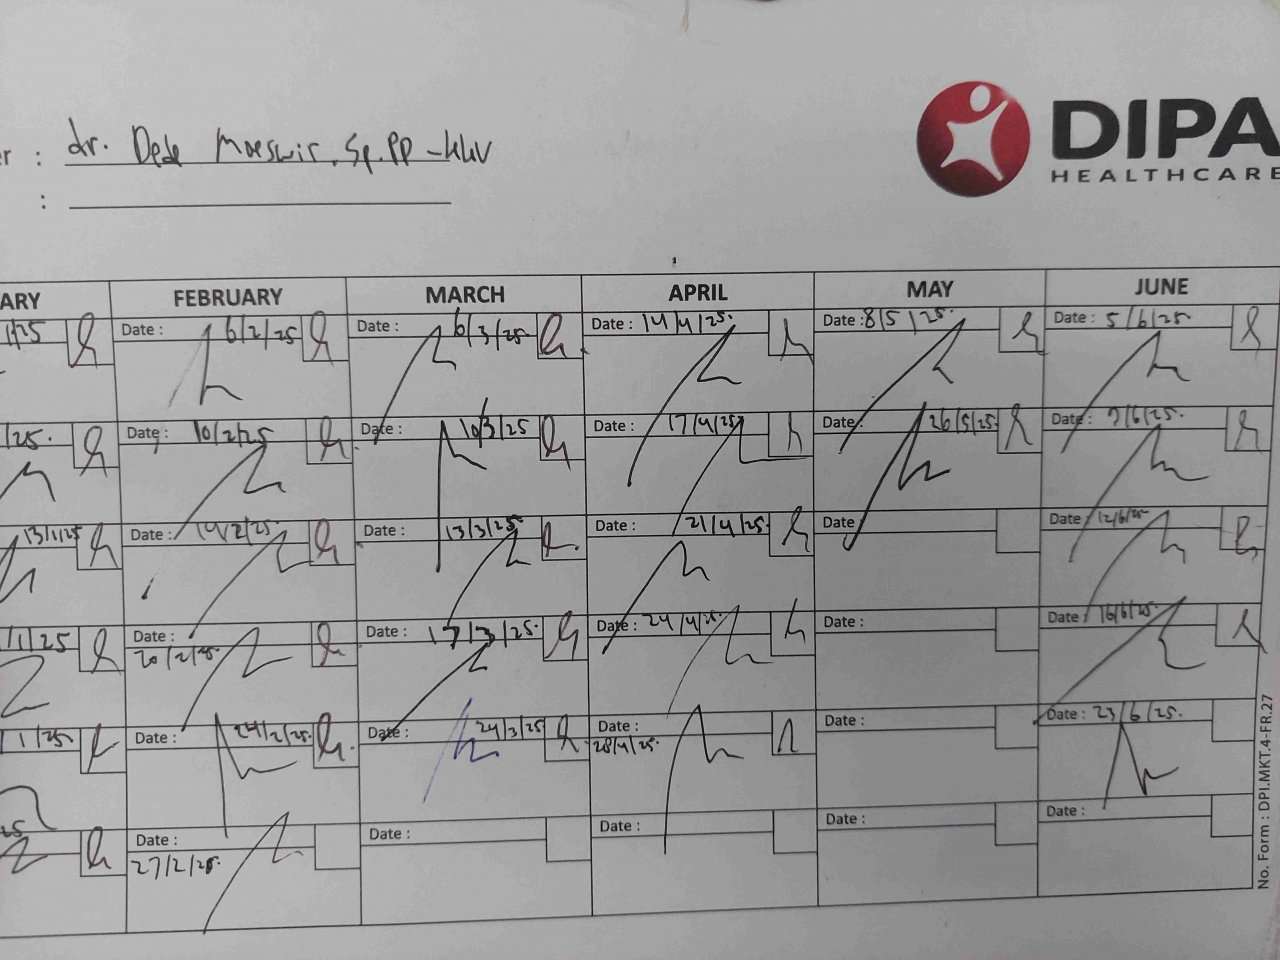 DIPA
HEALTHCARE
er : dr. Dede Moeswir.Sp.PD-KKV
:
ARY FEBRUARY MARCH APRIL MAY JUNE
Date : 6/2/25 Date : 6/3/25 Date : 14/4/25. Date : 8/5/25. Date : 5/6/25.
/25. Date : 10/2/25 Date : 10/3/25 Date : 17/4/25 Date : 26/5/25. Date : 9/6/25.
13/1/25 Date : 14/2/25. Date : 13/3/25. Date : 21/4/25. Date : Date : 12/6/25
/1/25 Date : 20/2/25. Date : 17/3/25. Date : 24/4/25. Date : Date : 16/6/25.
1/25. Date : 24/2/25. Date : 24/3/25 Date : 28/4/25. Date : Date : 23/6/25.
25 Date : 27/2/25. Date : Date : Date : Date :
No. Form : DPI.MKT.4-FR.27